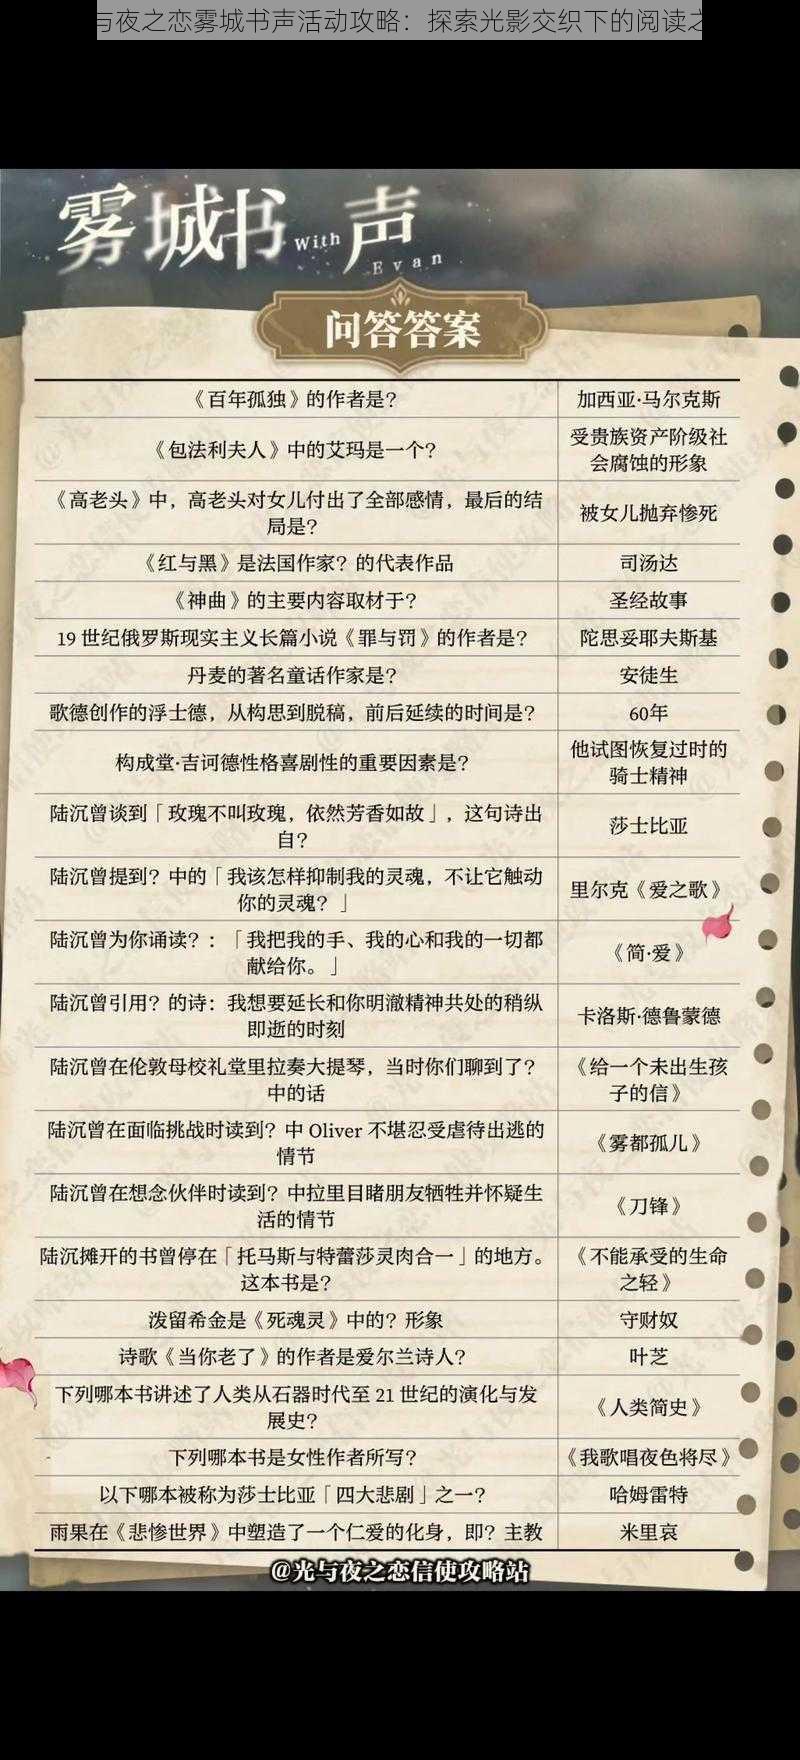 与夜之恋雾城书声活动攻略：探索光影交织下的阅读之
雾城书声
With
Evan
问答答案
《百年孤独》的作者是？
加西亚·马尔克斯
《包法利夫人》中的艾玛是一个？
受贵族资产阶级社
会腐蚀的形象
《高老头》中，高老头对女儿付出了全部感情，最后的结
局是？
被女儿抛弃惨死
《红与黑》是法国作家？的代表作品
司汤达
《神曲》的主要内容取材于？
圣经故事
19 世纪俄罗斯现实主义长篇小说《罪与罚》的作者是？
陀思妥耶夫斯基
丹麦的著名童话作家是？
安徒生
歌德创作的浮士德，从构思到脱稿，前后延续的时间是？
60年
构成堂·吉诃德性格喜剧性的重要因素是？
他试图恢复过时的
骑士精神
陆沉曾谈到「玫瑰不叫玫瑰，依然芳香如故」，这句诗出
自？
莎士比亚
陆沉曾提到？中的「我该怎样抑制我的灵魂，不让它触动
你的灵魂？」
里尔克《爱之歌》
陆沉曾为你诵读？：「我把我的手、我的心和我的一切都
献给你。」
《简·爱》
陆沉曾引用？的诗：我想要延长和你明澈精神共处的稍纵
即逝的时刻
卡洛斯·德鲁蒙德
陆沉曾在伦敦母校礼堂里拉奏大提琴，当时你们聊到了？
中的话
《给一个未出生孩
子的信》
陆沉曾在面临挑战时读到？中 Oliver 不堪忍受虐待出逃的
情节
《雾都孤儿》
陆沉曾在想念伙伴时读到？中拉里目睹朋友牺牲并怀疑生
活的情节
《刀锋》
陆沉摊开的书曾停在「托马斯与特蕾莎灵肉合一」的地方。
这本书是？
《不能承受的生命
之轻》
泼留希金是《死魂灵》中的？形象
守财奴
诗歌《当你老了》的作者是爱尔兰诗人？
叶芝
下列哪本书讲述了人类从石器时代至 21 世纪的演化与发
展史？
《人类简史》
下列哪本书是女性作者所写？
《我歌唱夜色将尽》
以下哪本被称为莎士比亚「四大悲剧」之一？
哈姆雷特
雨果在《悲惨世界》中塑造了一个仁爱的化身，即？主教
米里哀
@光与夜之恋信使攻略站